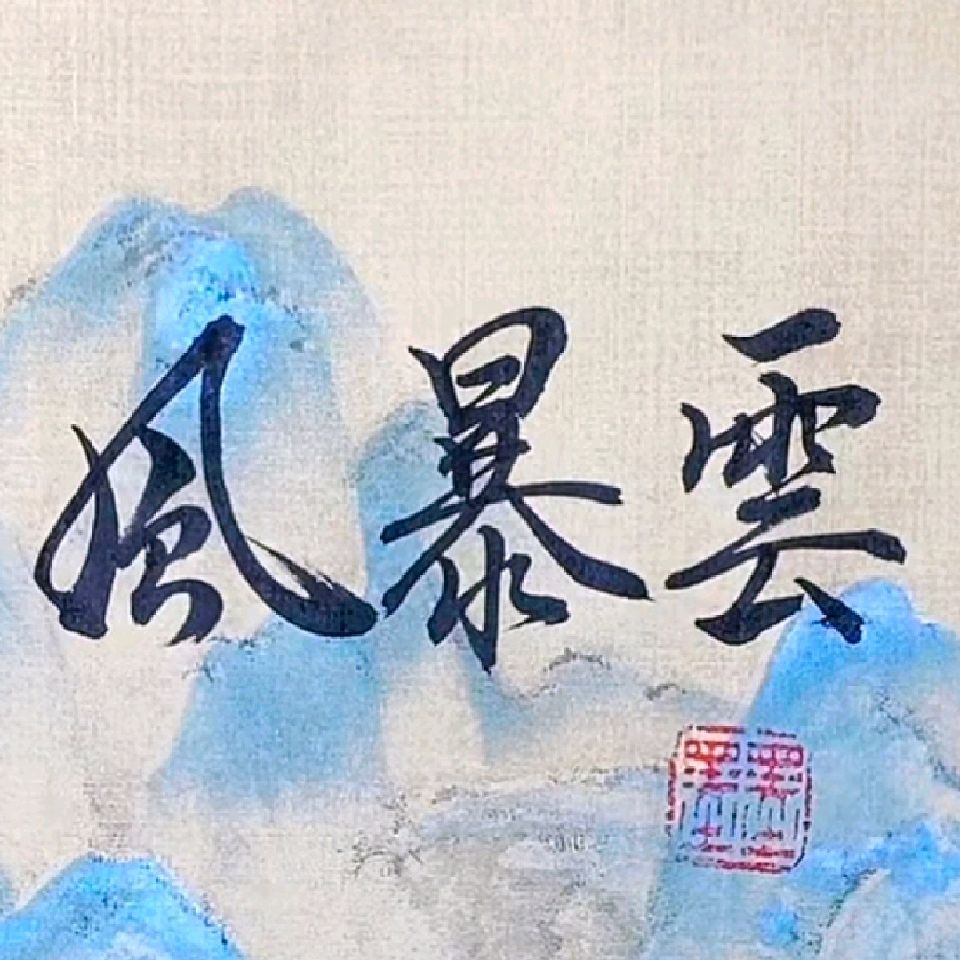 風暴雲